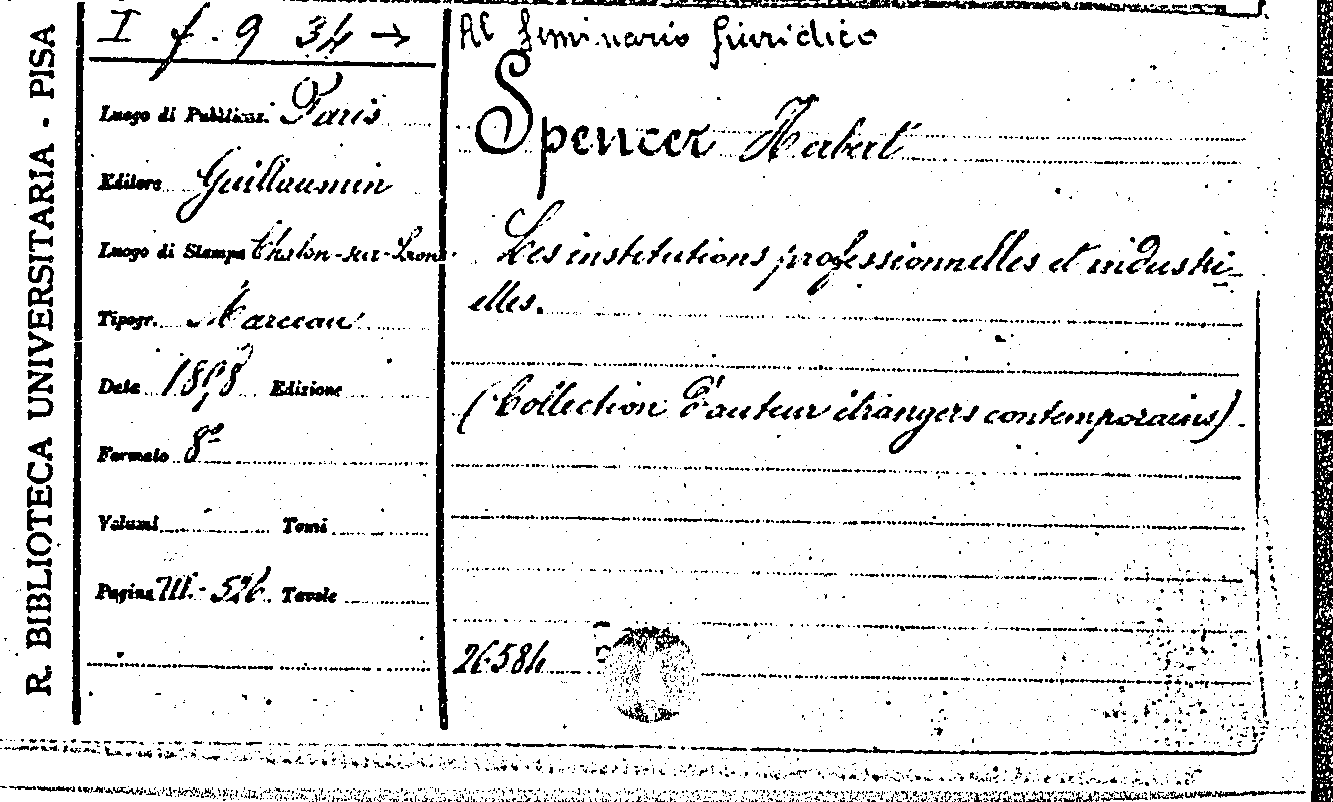 R. BIBLIOTECA UNIVERSITARIA - PISA
I f. 9 34 →
Luogo di Pubblicaz. Paris
Editore Guillaumin
Luogo di Stampa Chalon-sur-Saone
Tipogr. Marceau
Data 1898 Edizione
Formato 8º
Volumi Tomi
Pagine III - 526. Tavole
Al Seminario Giuridico
Spencer Herbert
Les institutions professionnelles et industri-
elles.
(Collection d'auteur étrangers contemporains).
26584